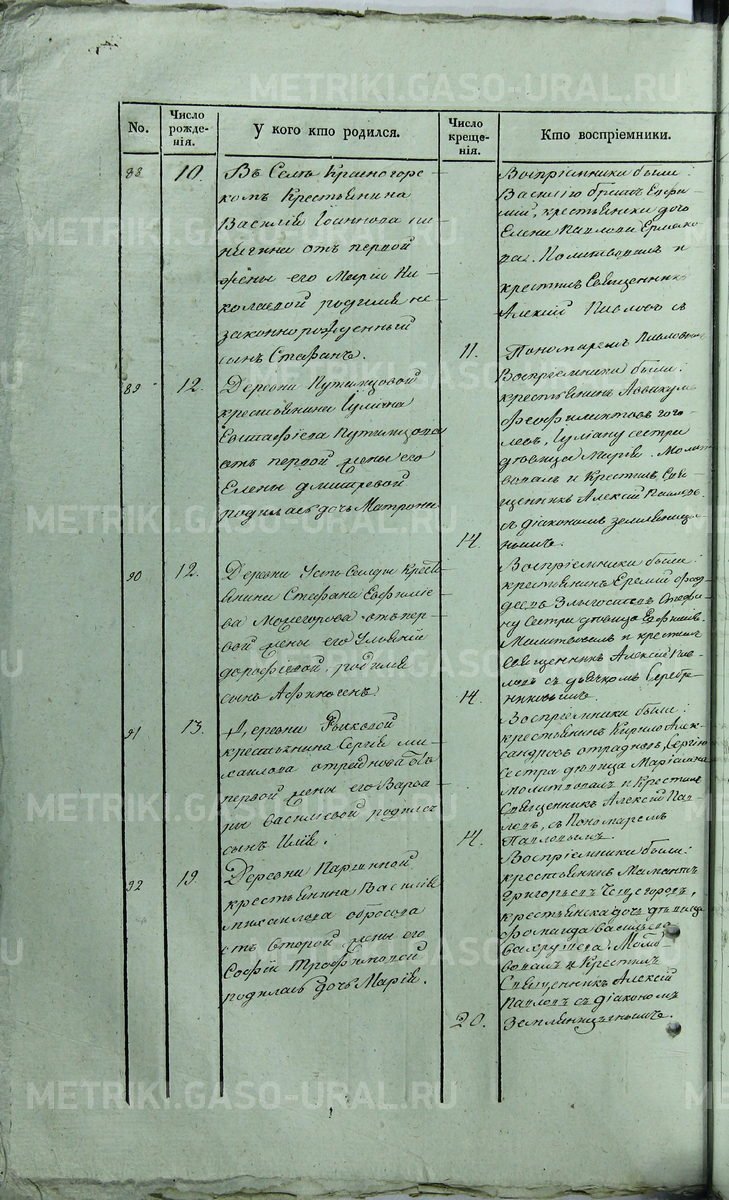 METRIKI.GASO-URAL.RU
No.
Число рожде-нія.
У кого кто родился.
Число креще-нія.
Кто воспріемники.
88
10.
Въ Селѣ Красногорс-
комъ Крестьянина
Василія Іоаннова
отъ первой
жены его Маріи Ни-
колаевой родился не-
законнорожденный
сынъ Стефанъ.
11.
Воспріемники были:
Василію братъ
крестьянска дочь
Елена Павлова Ермако-
ва. Молитвовалъ и
крестилъ Священникъ
Алексій Павловъ с
Пономаремъ Павловымъ
89
12.
Деревни Путимцовой
крестьянина
Евстафіева Путимцова
отъ первой жены его
Елены
родилась дочь Матрона
14.
Воспріемники были:
крестьянинъ Аввакумъ
сестра
дѣвица Марія. Молит-
вовалъ и Крестилъ Свя-
щенникъ Алексій Павлов
с діакономъ Земляницы-
нымъ.
90
12.
Деревни Кресть-
янина Стефана Евфиміе-
ва отъ пер-
вой жены его Ульяніи
дорофіевой, родился
сынъ Афиногенъ
14.
Воспріемники были:
крестьянинъ Еремій Фад-
деевъ Стефа-
ну сестра дѣвица
Молитвовалъ и крестилъ
Священникъ Алексій Пав-
ловъ съ дьячкомъ Серебре-
никовымъ.
91
13.
Деревни Рыковой
крестьянина Сергія ми-
хаилова отраднова отъ
первой жены его Варва-
ры василіевой родился
сынъ Илія.
14.
Воспріемники были:
крестьянинъ Кирило Алек-
сандровъ отрадновъ, Сергію
Сестра дѣвица Маріамна
молитвовалъ и Крестилъ
Священникъ Алексій Пав-
ловъ, съ Пономаремъ
Павловымъ.
92
19.
Деревни Паршиной
крестьянина Василія
михаилова обросова
отъ второй жены его
Софіи Трофимовой
родилась дочь Марія.
20.
Воспріемники были:
крестьянинъ Мамантъ
Григорьевъ
крестьянска дочь дѣвица
васильева
вахрушева. Молит-
вовалъ и Крестилъ
Священникъ Алексій
Павловъ съ діакономъ
Земляницынымъ.